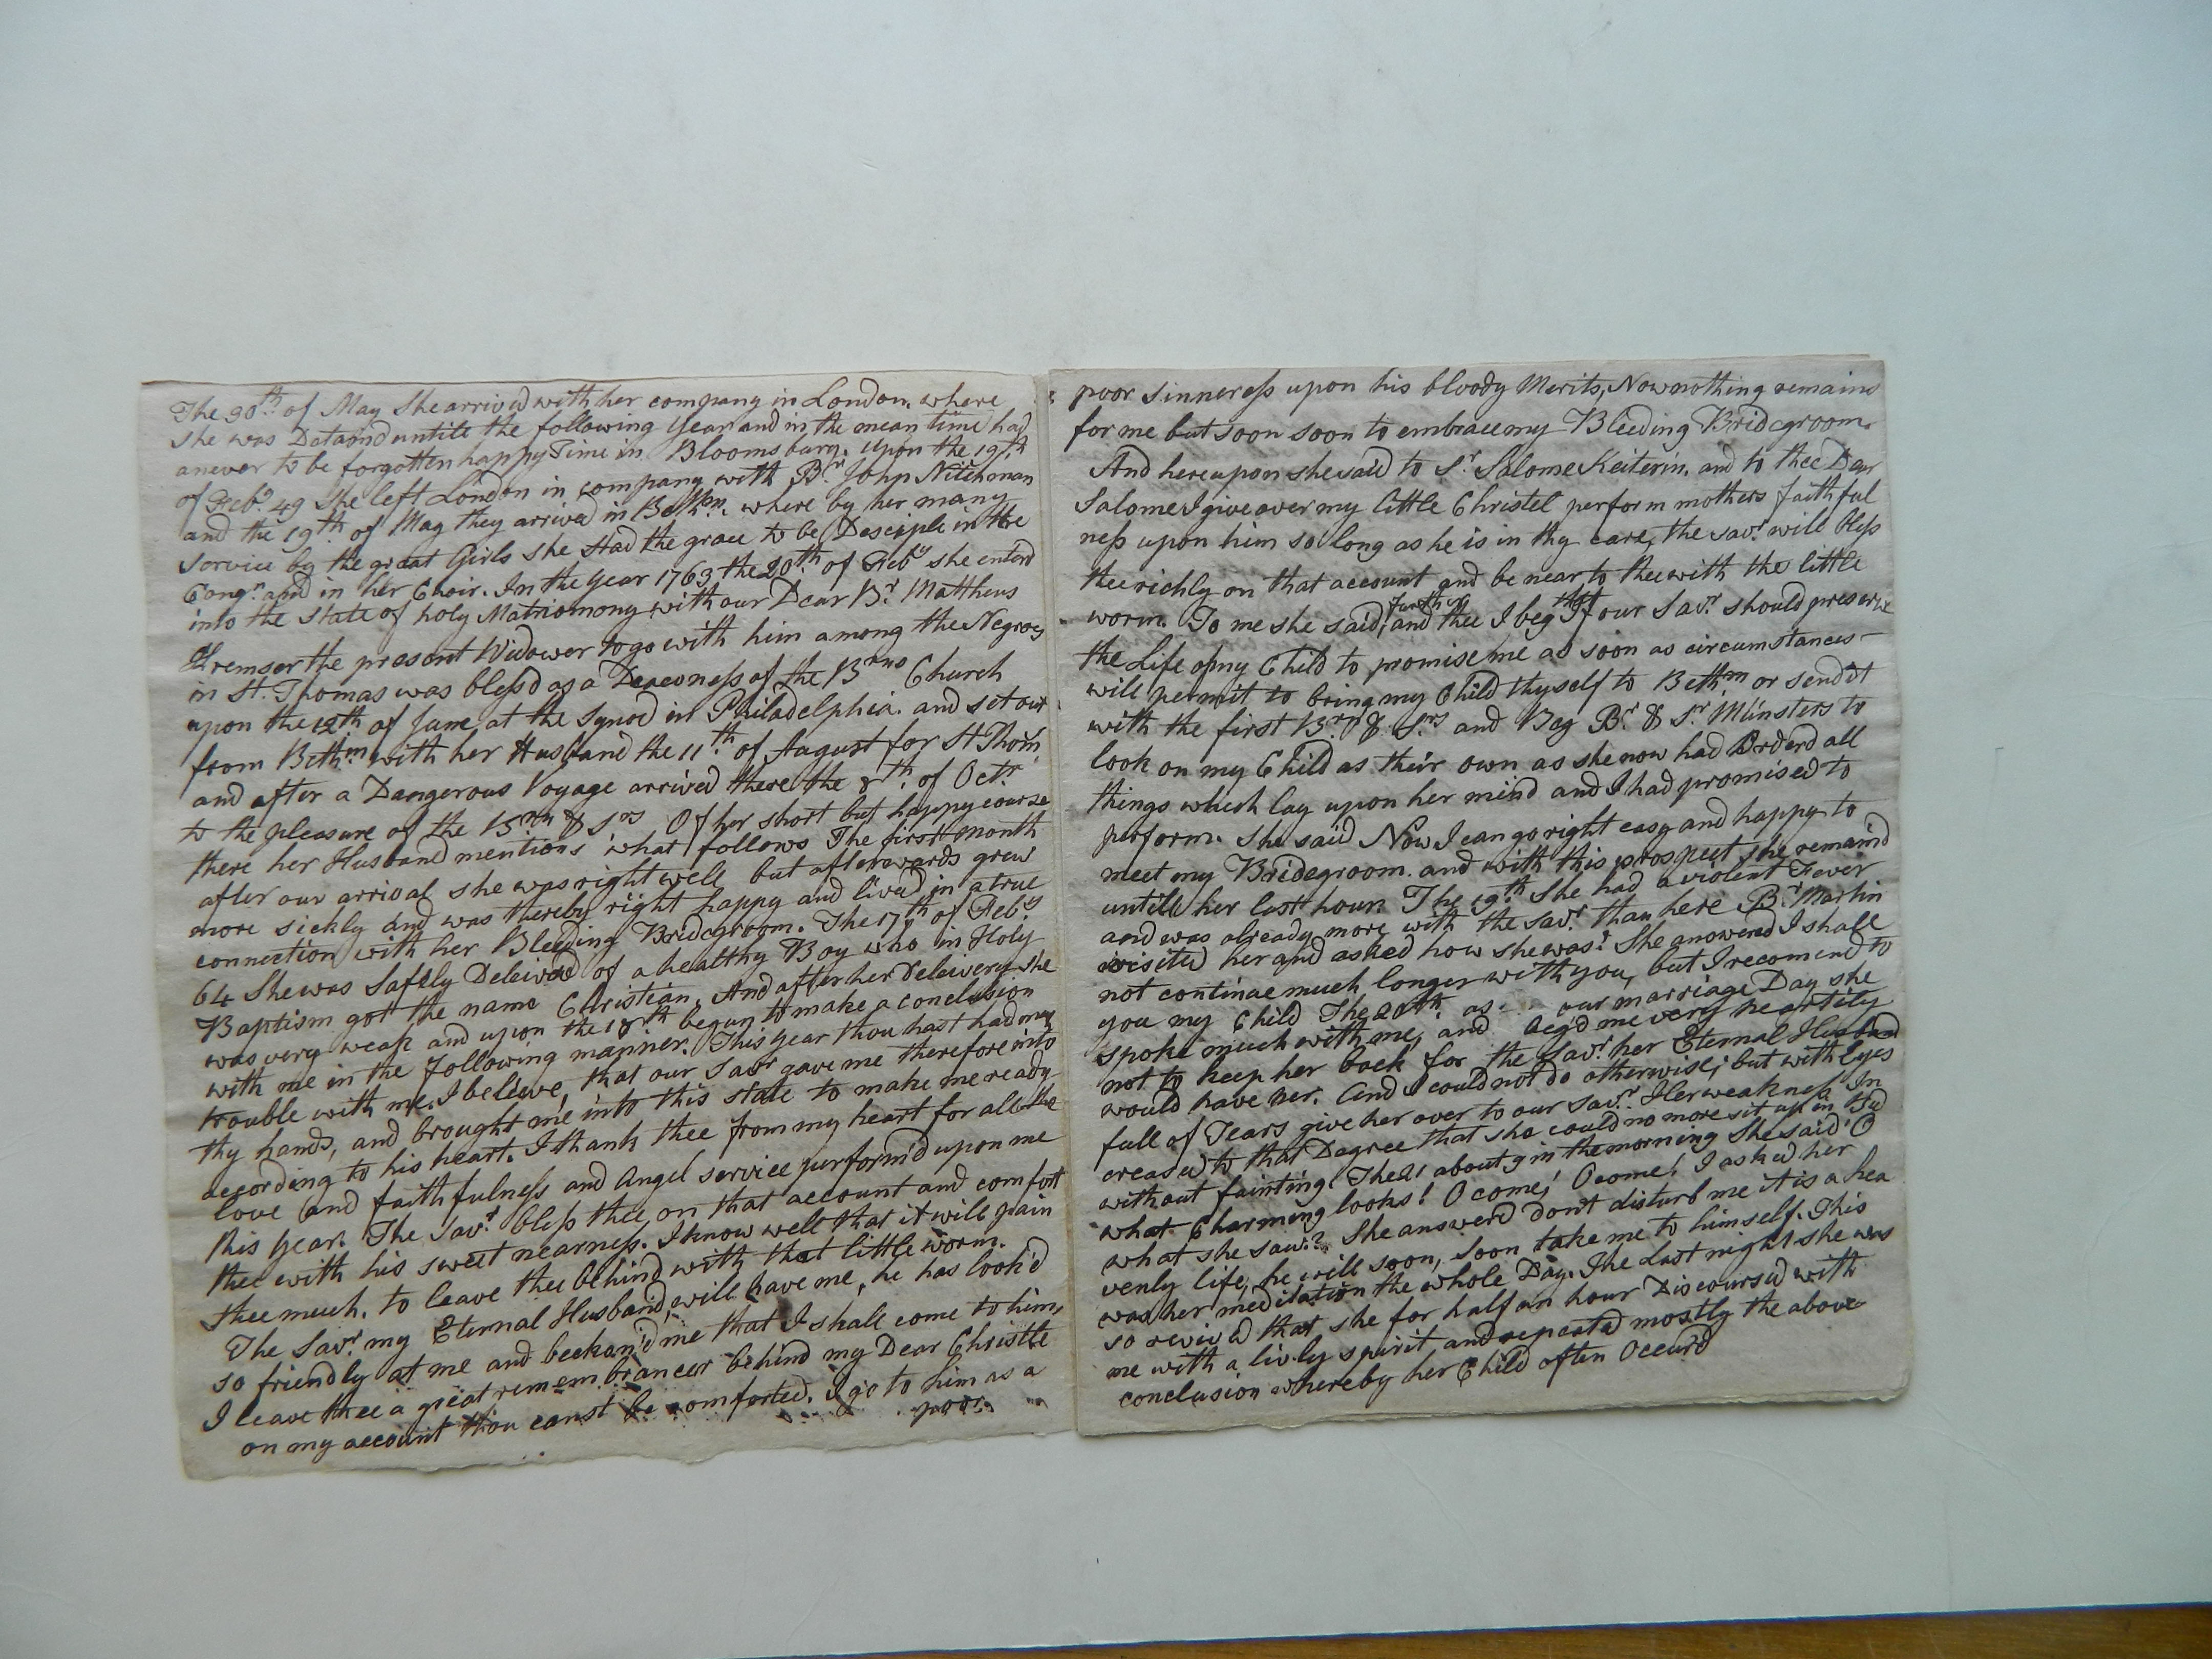 The 30th. of May She arrived with her company in London. where
she was Detaind untill the following Year and in the mean time had
a never to be forgotten happy Time in Bloomsbury. upon the 19th
of Feby. 49 She left London in company with Br. John Nitchman
and the 19th. of May they arrived in Bethm. where by her many
Service by the great Girls she Had the grace to be Desciple in the
Congn. and in her Choir. In the Year 1763 the 20th. of Feby she enterd
into the State of holy Matriomony with our Dear Br. Matthens
Kremser the present Widower to go with him among the Negroes
in St. Thomas was blessd as a Deaconess of the Brns Church
upon the 12th of June, at the Synod in Philadelphia. and set out
from Bethm with her Husband the 11th. of August for St Thom.
and after a Dangerous Voyage arrived there the 8th. of Octr.
to the pleasure of the Brn & Srs Of her short but happy course
there her Husband mentions what follows The first month
after our arrival she was right well but afterwards grew
more sickly and was thereby right happy and lived in a true
connection with her Bleeding Bridegroom. The 17th of Feby
64 She was Safely Deleiverd of a healthy Boy who in Holy
Baptism got the name Christian. And after her deleivery she
was very weak and upon the 18th begun to make a conclusion
with me in the following manner. This Year thou hast had my
trouble with me. I beleive, that our Savr gave me therefore into
thy hands, and brought me into this state to make me ready
according to his heart. I thank thee from my heart for all the
love and faithfulness and Angel service perform'd upon me
this Year. The Savr. bless thee on that account and comfort
thee with his sweet nearness. I know well that it will pain
thee much. to leave thee behind with that little worm.
The Savr. my Eternal Husband, will have me, he has look'd
so friendly at me and beckan'd me that I shall come to him,
I leave thee a great remembrancer behind my Dear Christle
on my account thou canst be comforted. I go to him as a
poor
poor sinneress upon his bloody Merits, Now nothing remains
for me but soon soon to embrace my Bleeding Bridegroom.
And hereupon she said to Sr. Salome Keiterin. and to thee Dear
Salome I give over my little Christel perform mothers faithful
ness upon him so long as he is in thy care, the savr. will bless
thee richly on that account and be near to thee with the little
worm. To me she said, further and thee I beg that If our Savr. should preserve
the Life of my Child to promise me as soon as circumstances
will permit to bring my Child thyself to Bethm or send it
with the first Brn & Srs and Beg Br. & Sr. Münsters to
look on my Child as their own as she now had Orderd all
things which lay upon her mind and I had promised to
perform. she said Now I can go right easy and happy to
meet my Bridegroom. and with this prospect she remaind
untill her last hour. The 19th. She had a violent Fever
and was already more with the Savr. than here Br. Martin
viseted her and asked how she was? She answered I shall
not continue much longer with you, but I recomend to
you my Child The 20th. as our marriage Day she
spoke much with me, and beg'd me very heartily
not to keep her back for the Savr. her Eternal Husband
would have her. And I could not do otherwise; but with Eyes
full of Tears give her over to our Savr. Her weakness In
creased to that Dagree that she could no more sit up in Bed
without fainting. The 21 about 9 in the morning She said O
what Charming looks! O come! O come! I asked her
what she saw? She answerd don't disturb me it is a hea
venly life, he will soon, soon take me to himself. This
was her meditation the whole Day. The Last night she was
so revived that she for half an hour Discoursed with
me with a livly spirit and repeated mostly the above
conclusion whereby her Child often Occurd